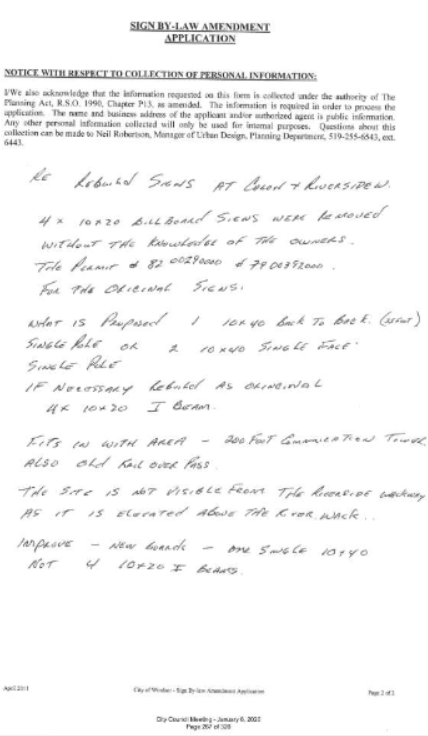 SIGN BY-LAW AMENDMENT
APPLICATION
NOTICE WITH RESPECT TO COLLECTION OF PERSONAL INFORMATION:
I/We also acknowledge that the information requested on this form is collected under the authority of The
Planning Act, R.S.O. 1990, Chapter P13, as amended. The information is required in order to process the
application. The name and business address of the applicant and/or authorized agent is public information.
Any other personal information collected will only be used for internal purposes. Questions about this
collection can be made to Neil Robertson, Manager of Urban Design, Planning Department, 519-255-6543, ext.
6443.
RE Rebuild SIGNS AT & RIVERSIDE W.
4 x 10x20 BILLBOARD SIGNS WERE REMOVED
WITHOUT THE KNOWLEDGE OF THE OWNERS.
THE PERMIT # 82 00290000 # 7900392000.
FOR THE ORIGINAL SIGNS.
WHAT IS PROPOSED 1 10x40 BACK TO BACK.
SINGLE POLE OR 2 10x40 SINGLE FACE
SINGLE POLE
IF NECESSARY REBUILD AS ORIGINAL
4x 10x20 I BEAM.
FITS IN WITH AREA - 200 FOOT COMMUNICATION TOWER
ALSO OLD RAIL OVER PASS.
THE SITE IS NOT VISIBLE FROM THE RIVERSIDE WALKWAY
AS IT IS ELEVATED ABOVE THE RIVER WALK..
IMPROVE - NEW BOARDS - ONE SINGLE 10x40
NOT 4 10x20 I BEAMS.
April 2011
City of Windsor - Sign By-law Amendment Application
Page 2 of 2
City Council Meeting - January 6, 2020
Page 267 of 328